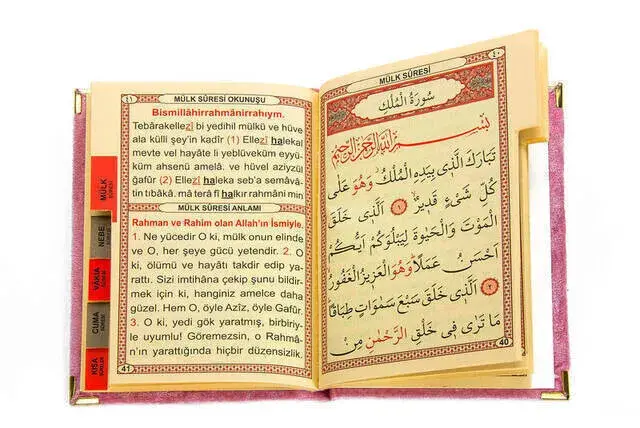 ٤٠
MÜLK SÛRESİ
سُورَةُ الْمُلْكِ
بِسْمِ اللّٰهِ الرَّحْمٰنِ الرَّحِيمِ
تَبَارَكَ الَّذٖى بِيَدِهِ الْمُلْكُ وَهُوَ عَلٰى
كُلِّ شَىْءٍ قَدٖيرٌ ﴿١﴾ اَلَّذٖى خَلَقَ
الْمَوْتَ وَالْحَيٰوةَ لِيَبْلُوَكُمْ اَيُّكُمْ
اَحْسَنُ عَمَلًا وَهُوَ الْعَزٖيزُ الْغَفُورُ
﴿٢﴾ اَلَّذٖى خَلَقَ سَبْعَ سَمٰوَاتٍ طِبَاقًا
مَا تَرٰى فٖى خَلْقِ الرَّحْمٰنِ مِنْ
40
٤١
MÜLK SÛRESİ OKUNUŞU
Bismillâhirrahmânirrahıym.
Tebârakellezî bi yedihil mülkü ve hüve
ala külli şey'in kadîr (1) Ellezî halekal
mevte vel hayâte li yeblüveküm eyyü-
küm ahsenü amelâ. ve hüvel azîyzül
ğafûr (2) Ellezî haleka seb'a semâvâ-
tin tıbâkâ. mâ terâ fî halkır rahmâni min
MÜLK SÛRESİ ANLAMI
Rahman ve Rahîm olan Allah'ın İsmiyle.
1. Ne yücedir O ki, mülk onun elinde
ve O, her şeye gücü yetendir. 2. O
ki, ölümü ve hayâtı takdir edip yara-
rattı. Sizi imtihâna çekip şunu bildir-
mek için ki, hanginiz amelce daha
güzel. Hem O, öyle Azîz, öyle Gafûr.
3. O ki, yedi gök yaratmış, birbiriy-
le uyumlu! Göremezsin, o Rahmâ-
n'ın yarattığında hiçbir düzensizlik.
41
MÜLK
SÛRESİ
NEBE
SÛRESİ
VÂKIA
SÛRESİ
CUMA
SÛRESİ
KISA
SÛRELER